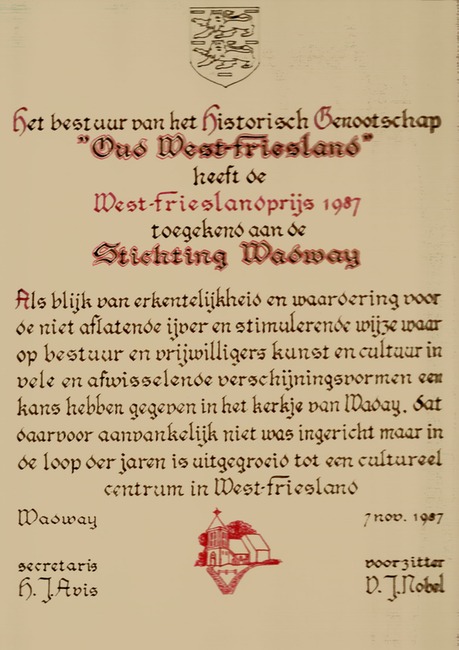 Het bestuur van het Historisch Genootschap
"Oud West-friesland"
heeft de
West-frieslandprijs 1987
toegekend aan de
Stichting Wadway
Als blijk van erkentelijkheid en waardering voor
de niet aflatende ijver en stimulerende wijze waar
op bestuur en vrijwilligers kunst en cultuur in
vele en afwisselende verschijningsvormen een
kans hebben gegeven in het kerkje van Waday, dat
daarvoor aanvankelijk niet was ingericht maar in
de loop der jaren is uitgegroeid tot een cultureel
centrum in West-friesland
Wadway 7 nov. 1987
secretaris voorzitter
H. J. Avis D. J. Nobel